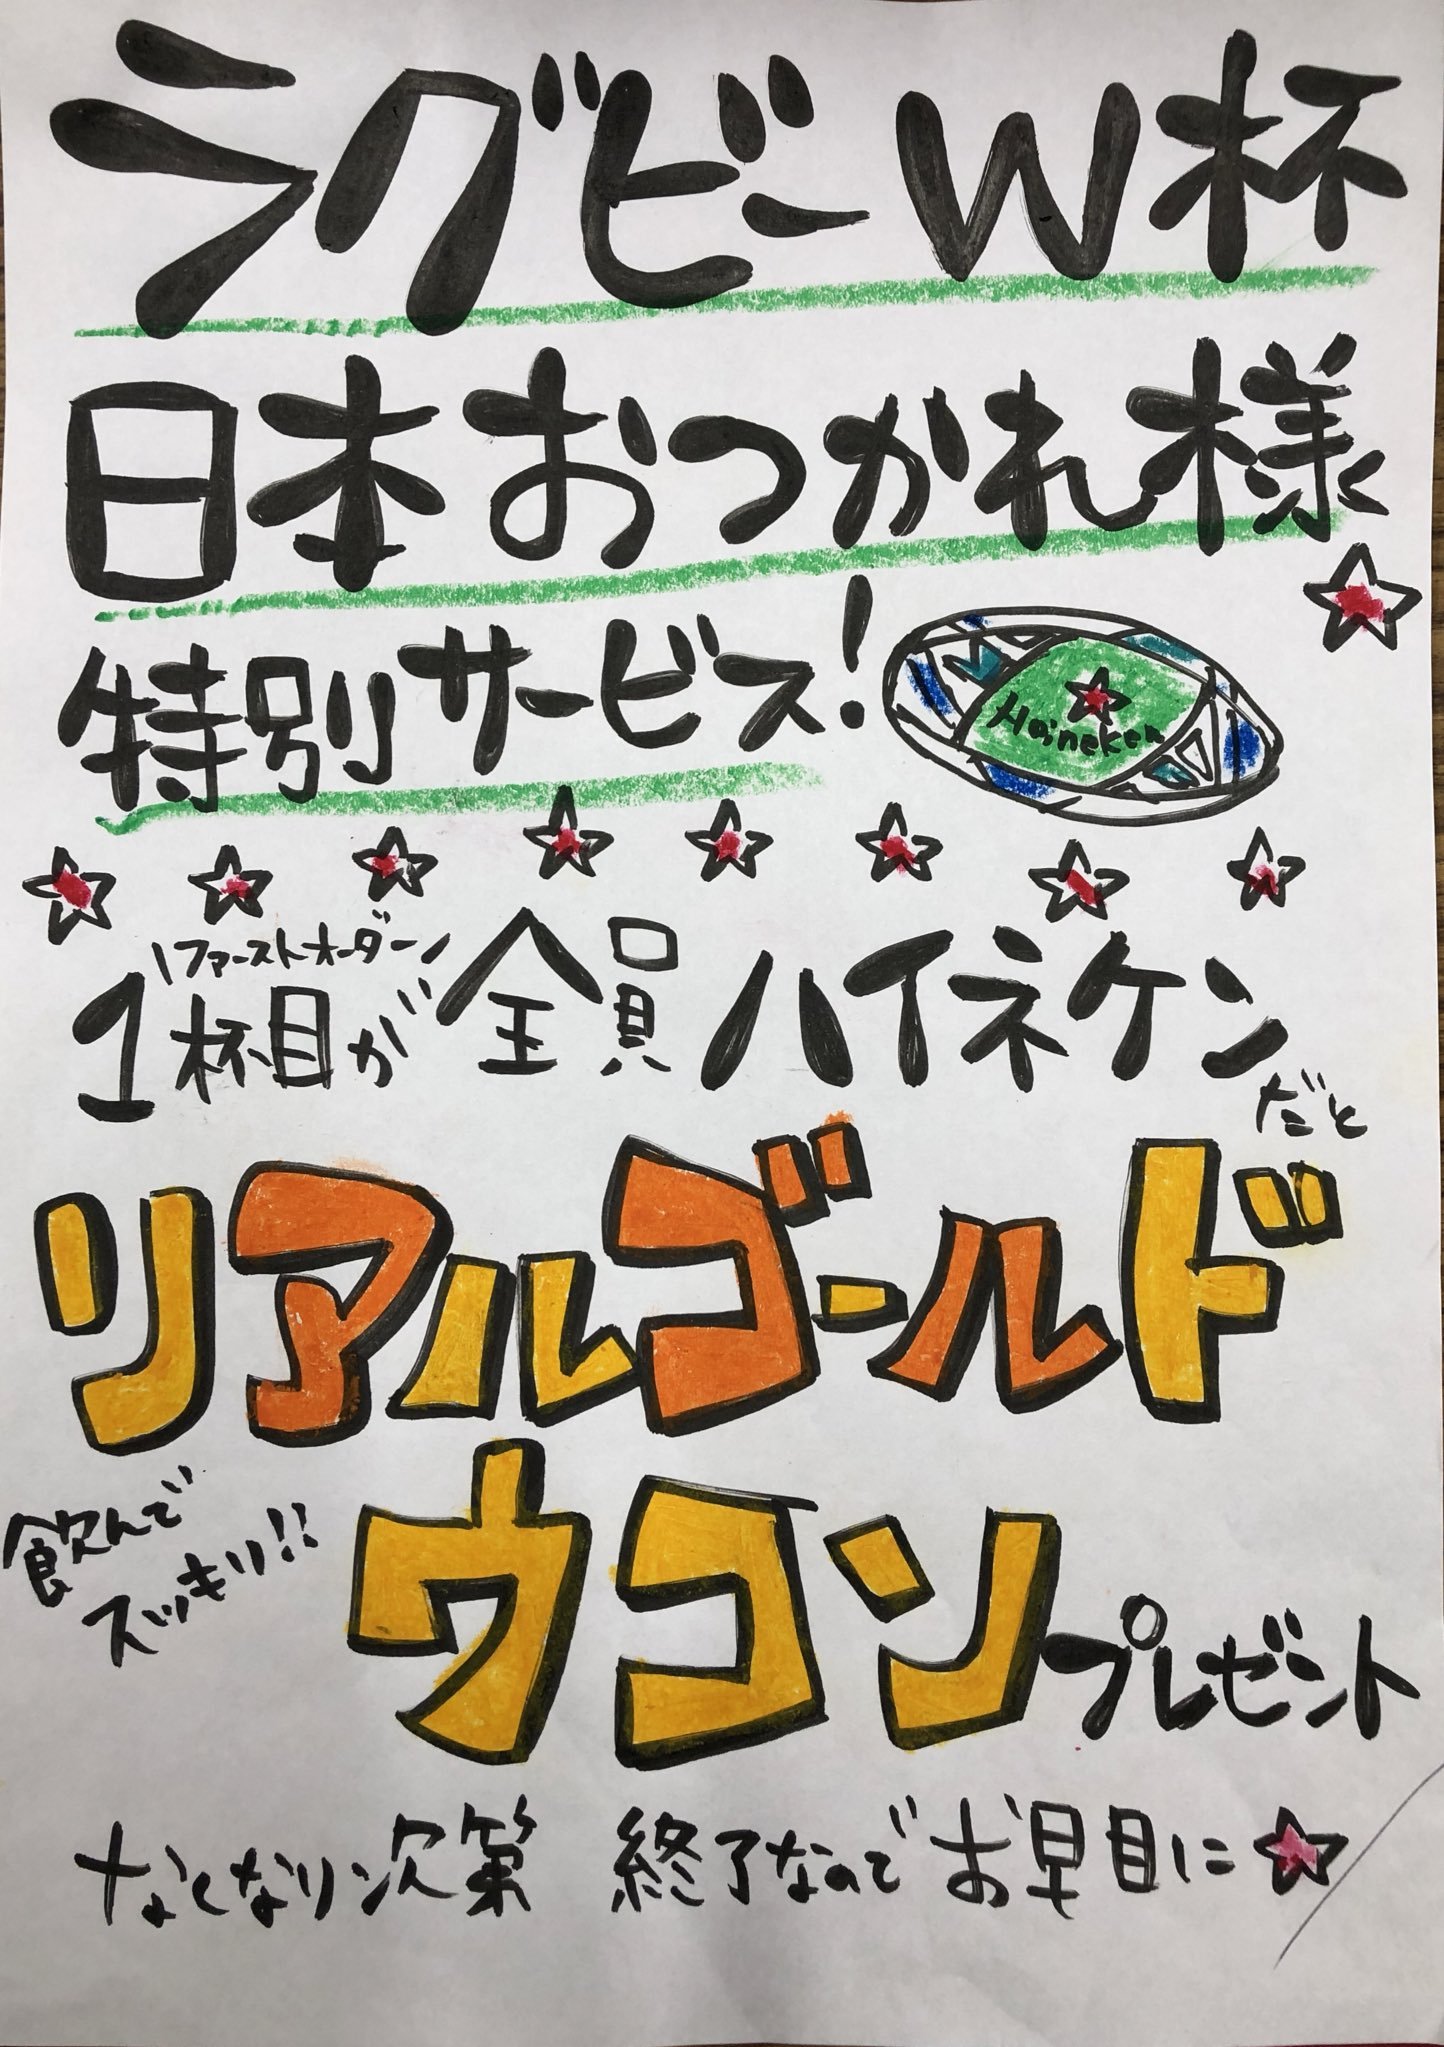 ラグビーW杯
日本おつかれ様
特別サービス!
Heineken
\ファーストオーダー/
1杯目が全員ハイネケンだと
リアルゴールド
飲んでスッキリ!!
ウコンプレゼント
なくなり次第 終了なのでお早目に